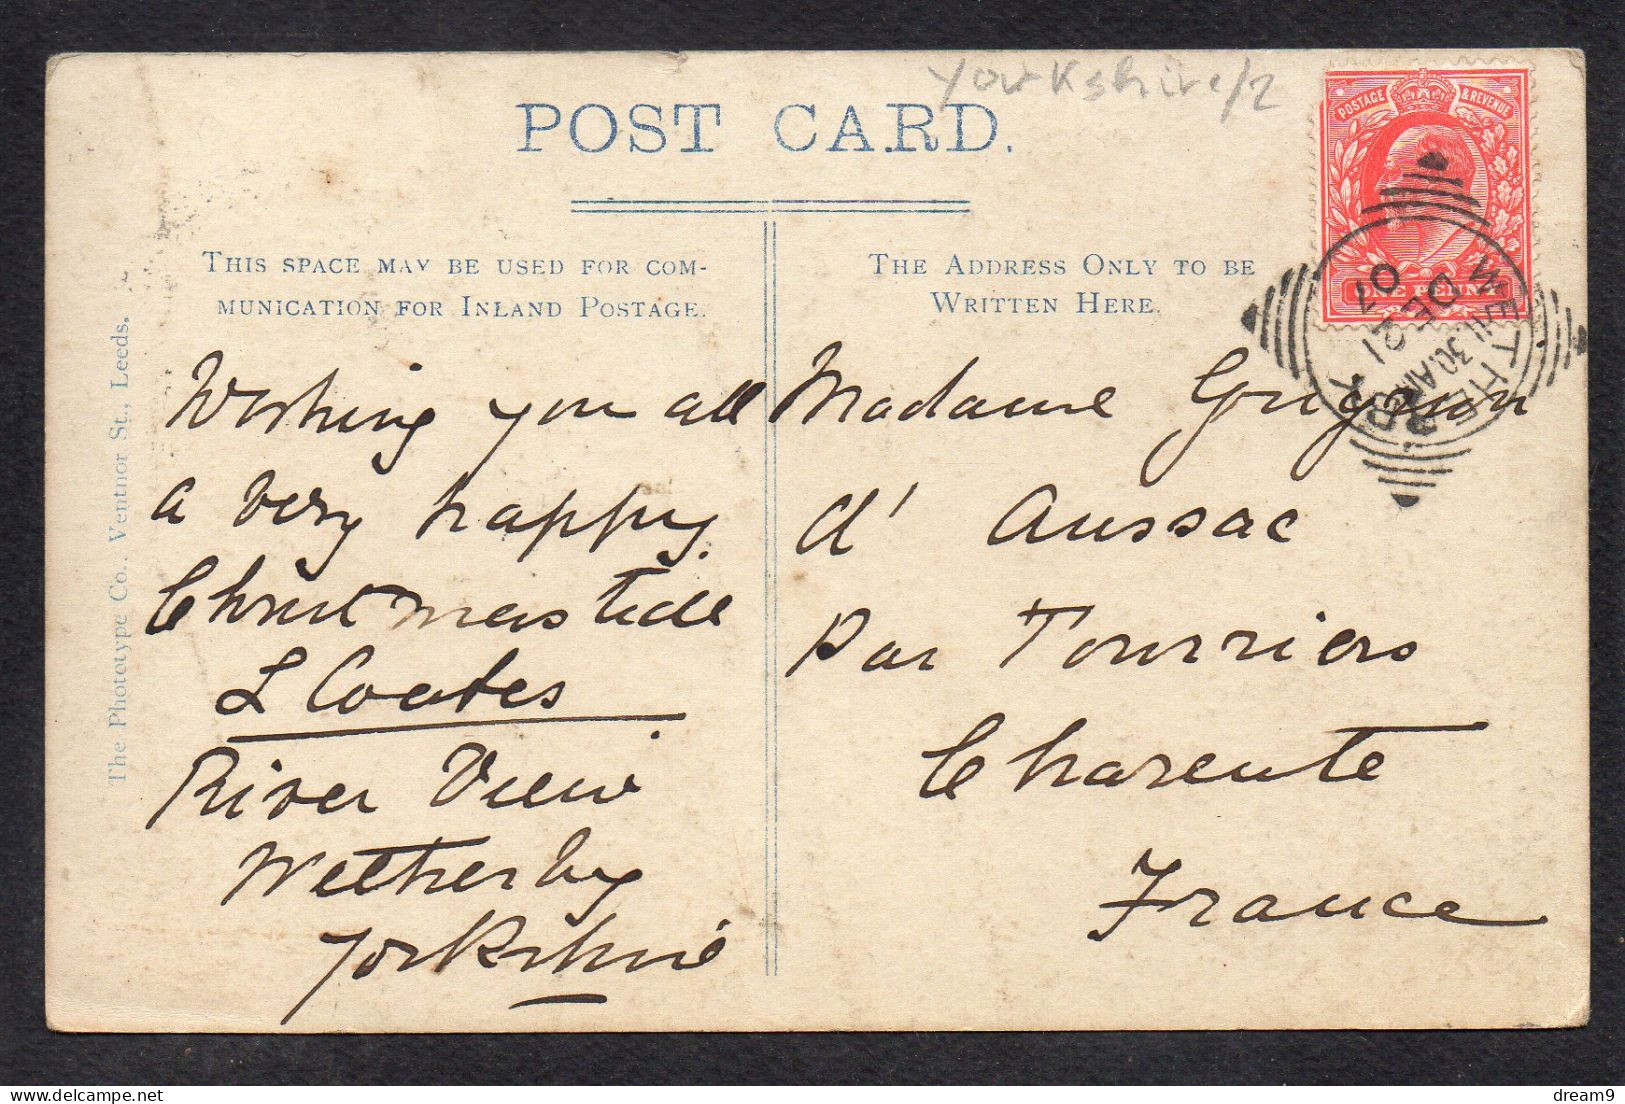 yorkshire/2
POST CARD.
THIS SPACE MAY BE USED FOR COM-
MUNICATION FOR INLAND POSTAGE.
THE ADDRESS ONLY TO BE
WRITTEN HERE.
POSTAGE & REVENUE
ONE PENNY
WETHERBY
11.30AM
DE 21
07
The Phototype Co., Ventnor St., Leeds.
Wishing you all
a very happy
Christmas tide
L Coates
River View
Wetherby
Yorkshire
Madame
d' Aussac
Par Tourriers
Charente
France
dream9